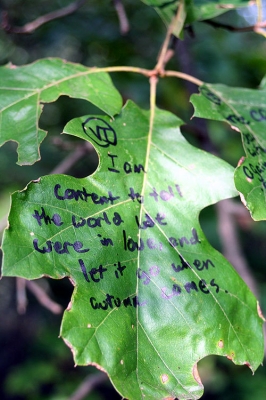 VII
I am
content to tell
the world that
were in love, and
let it be when
autumn comes.